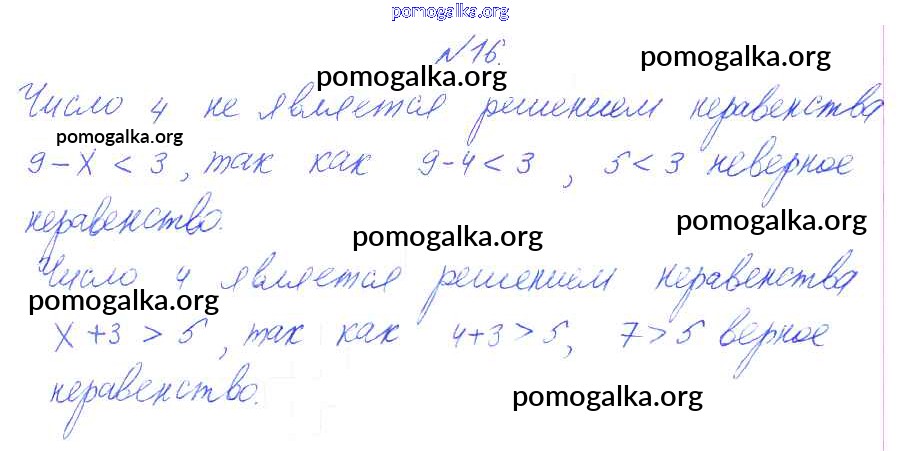 pomogalka.org
№16.
pomogalka.org
pomogalka.org
Число 4 не является решением неравенства
pomogalka.org
9-x<3, так как 9-4<3, 5<3 неверное
неравенство.
pomogalka.org
pomogalka.org
Число 4 является решением неравенства
pomogalka.org
x+3>5, так как 4+3>5, 7>5 верное
неравенство.
pomogalka.org